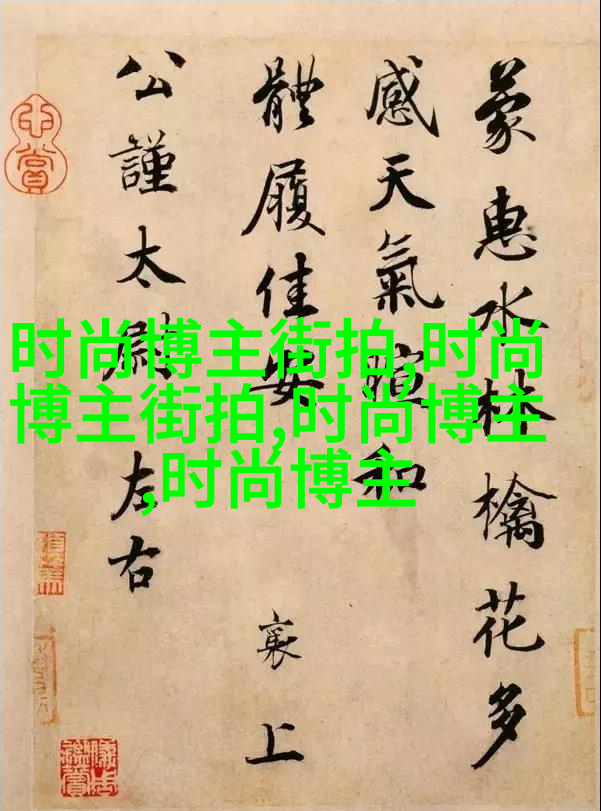 蒙惠水林檎花多
感天氣暄和
體履佳安
襄上
公謹太尉左右
时尚博主街拍,时尚
博主街拍,时尚博主
,时尚博主